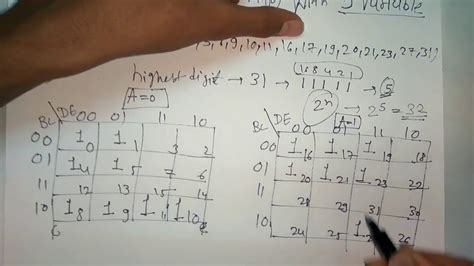 with 5 variable
5,8,9,10,11,16,17,19,20,21,23,27,31)
highest digit → 31 → 1 1 1 1 1 → 5
16 8 4 2 1
2ⁿ → 2⁵ = 32
A=0
BC DE 00 01 11 10
00 1 0 1 1 3 2
01 1 4 1 5 7 6
11 12 13 15 14
10 1 8 1 9 1 11 1 10
A=1
BC DE 00 11 10
00 1 16 1 17 1 19 18
01 1 20 1 21 1 23 22
11 28 29 31 30
10 24 25 1 26